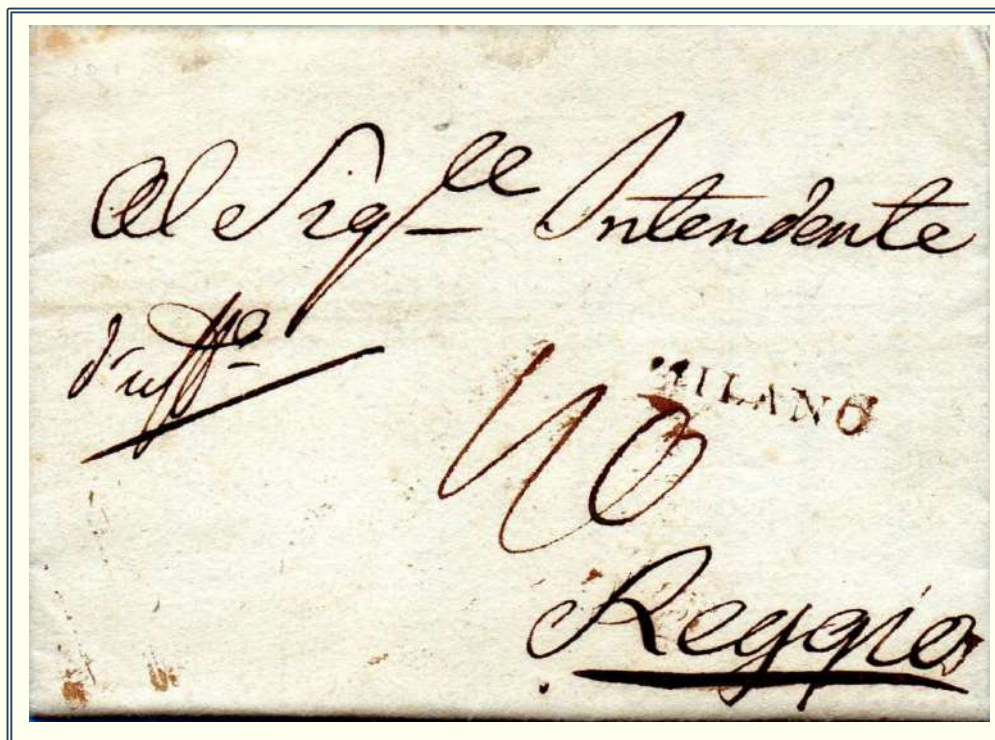 Al Sig.re Intendente
d'uff.o
MILANO
40
Reggio